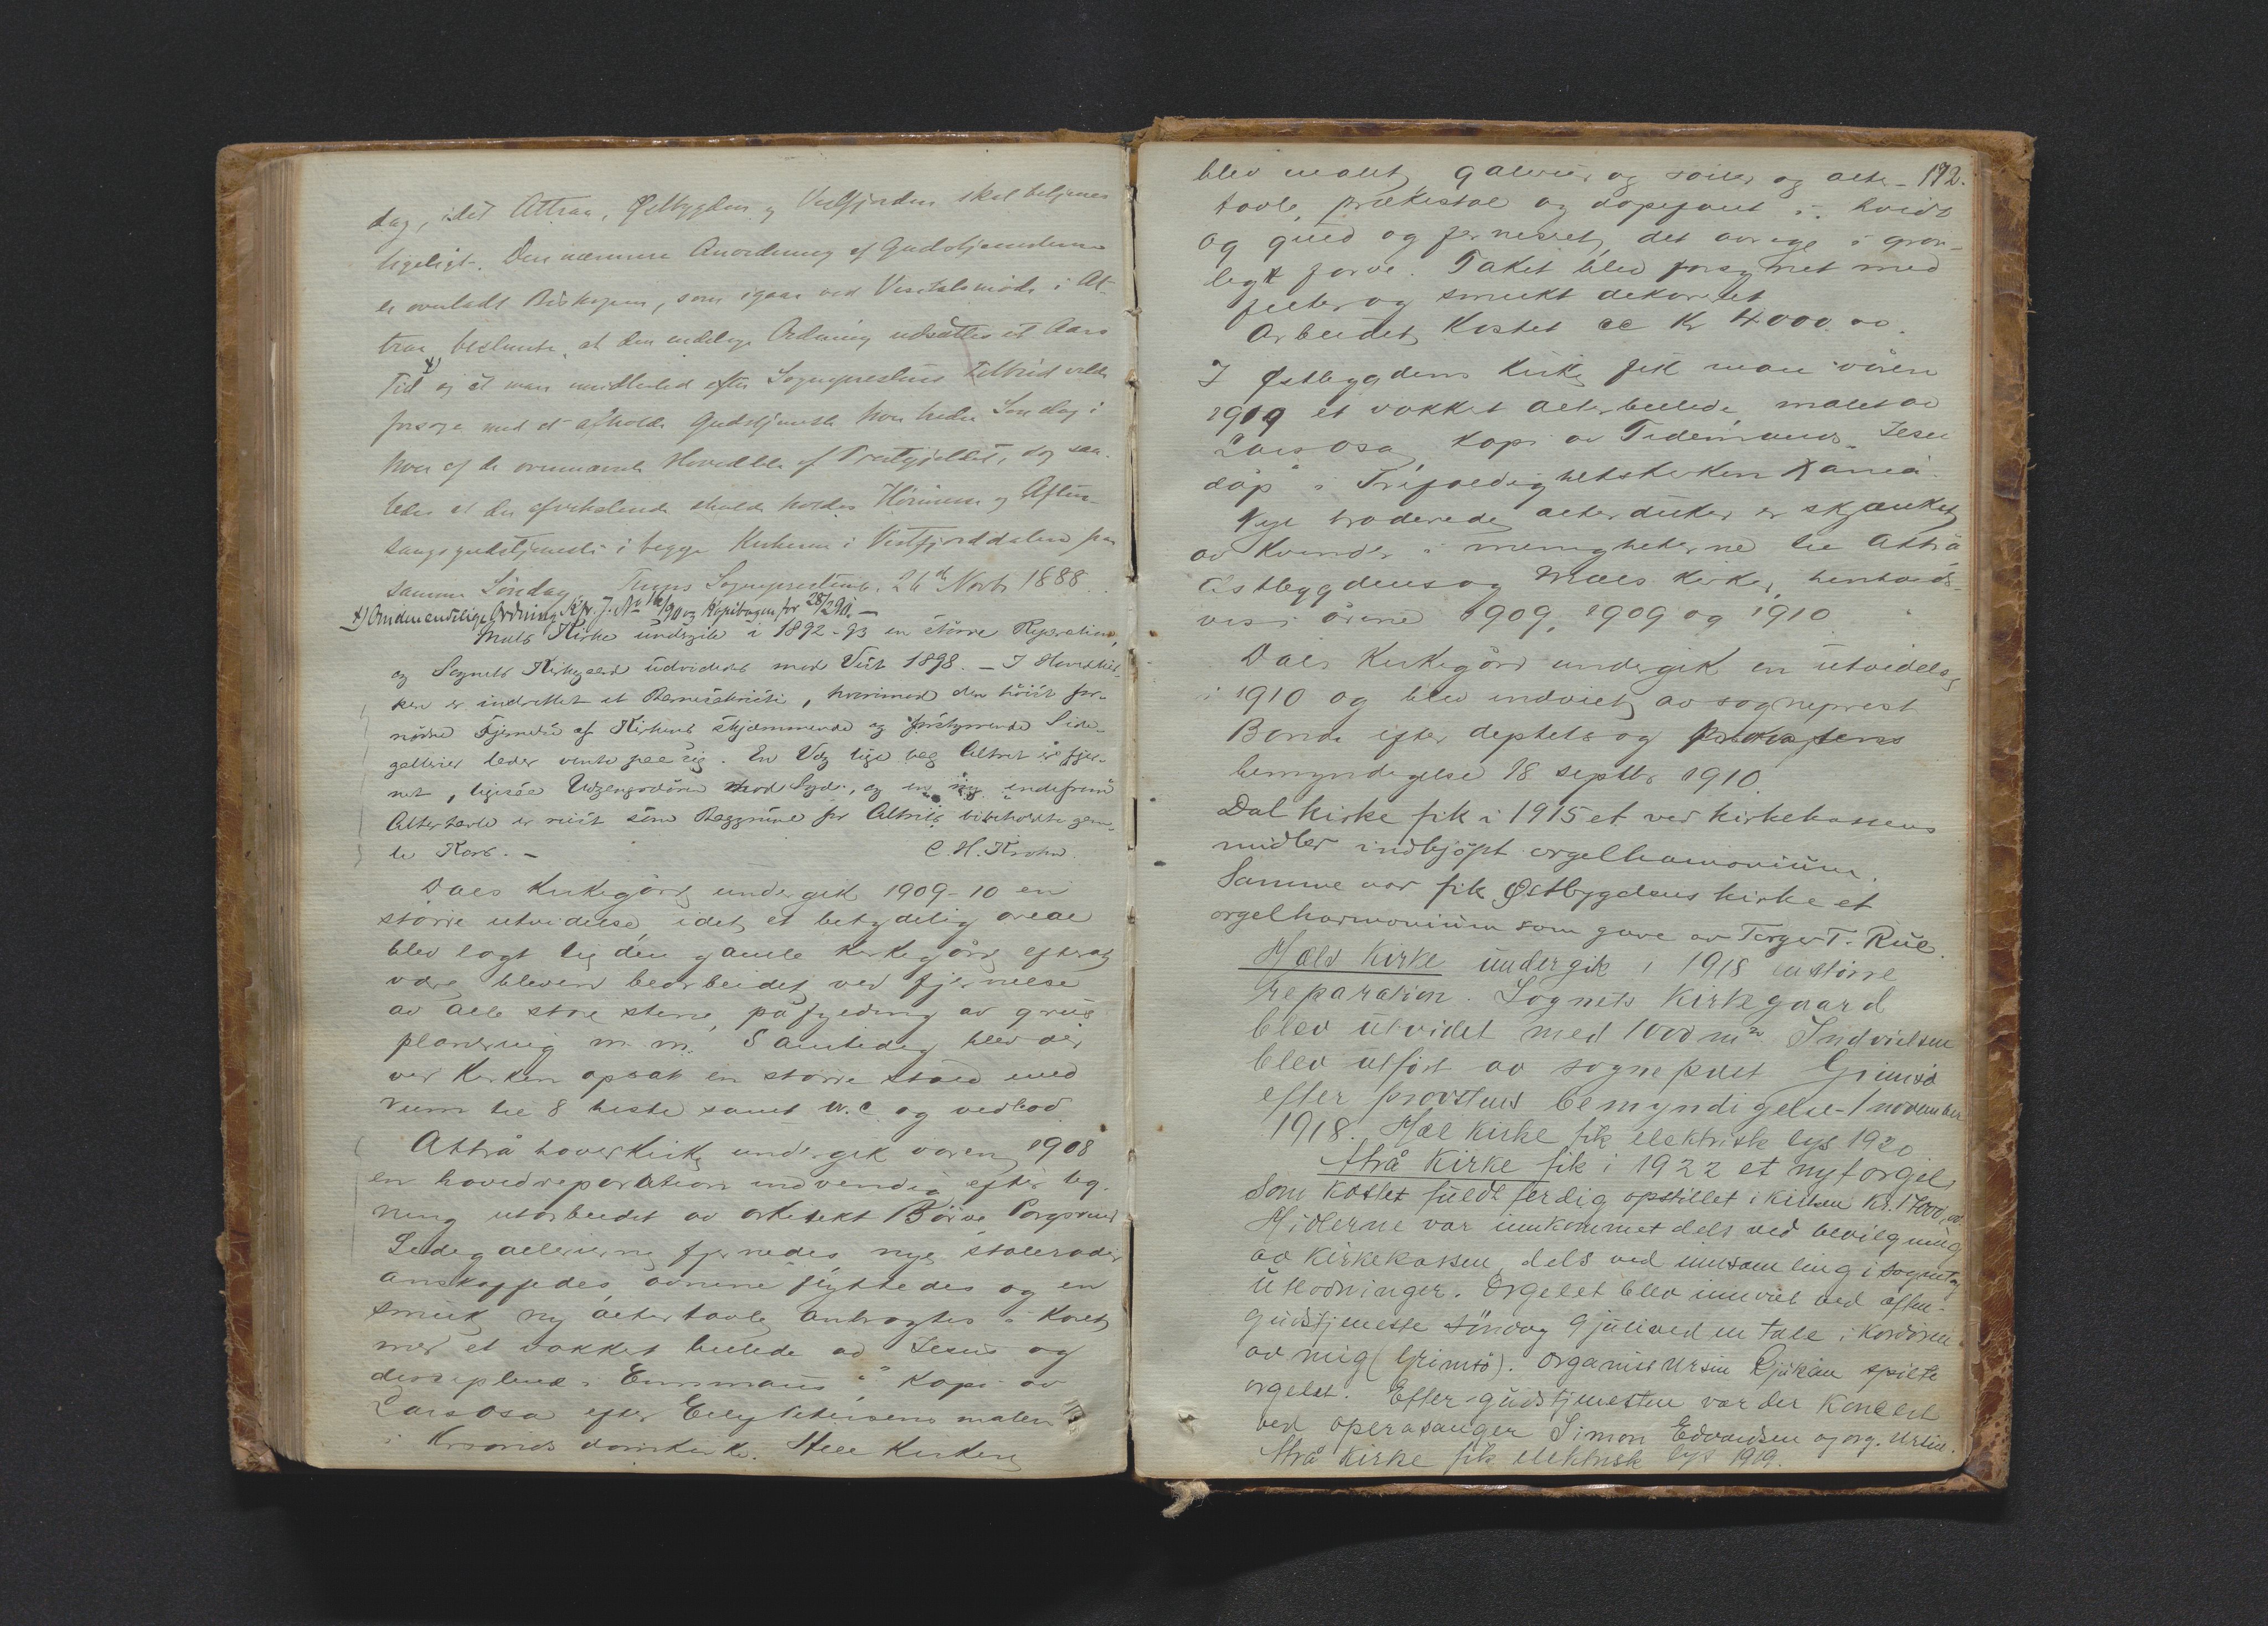 dag, idet Attraa, Østbygden og Vestfjorden skal betjenes
ligeligt. Den nærmere Anordning af Gudstjenesterne
er overladt Biskopen, som igaar ved Visitatsmøde i At-
traa bestemte, at den endelige Ordning udsættes et Aars
Tid x) og at man imidlertid efter Sognepræstens Tilbud vilde
forsøge med at afholde Gudstjeneste hver tredie Søndag i
hver af de ovennævnte Hoveddele af Præstegjældet, dog saa-
ledes at der afvexlende skulde holdes Høimesse og Aften-
sangsgudstjeneste i begge Kirkerne i Vestfjorddalen paa
samme Søndag. Tinns Sogneprestemb. 26de Novb. 1888.
x) Om den endelige Ordning Kfr. J. No 16/90 og Kopibogen for 28/2 90. -
Mæls Kirke undergik i 1892-93 en større Reparation,
og Sognets Kirkegaard udvidedes mod Vest 1898. - I Hovedkir-
ken er indrettet et Barnesakristi, hvorimod den høist for-
nødne Fjernelse af Kirkens skjæmmende og forstyrrende Side-
gallerier lader vente paa sig. En Væg lige bag Altret er fjer-
net, ligesaa Udgangsdøren mod Syd, og en ny indefra
Altertavle er reist som Baggrund for Altrets bibeholdte gam-
le Kors. - C. H. Krohn
Dals Kirkegård undergik 1909-10 en
større utvidelse, idet et betydelig areal
blev lagt til den gamle kirkegård efterat
være bleven bearbeidet ved fjernelse
av alle store stene, påfylding av grus
planering m. m. Samtidig blev der
ved kirken opsat en større stald med
rum til 8 heste samt W.C. og vedbod
Attrå hovedkirke undergik våren 1908
en hovedreparation indvendig efter teg-
ning utarbeidet av arkitekt Børve Porsgrund
Sidegallerierne fjernedes, nye stolerader
anskaffedes, ovnene flyttedes og en
smuk ny altertavle anbragtes i koret
med et vakkert billede av "Jesus og
disciplene i Emmaus", kopi av
Lars Osa efter Eilif Petersens maleri
i Krsands domkirke. Hele kirken
192.
blev malt, galleri og søiler og alter-
tavle, prækestol og døpefont i hvidt
og guld og fernisert, det øvrige i grøn-
legt farve. Taket blev forsynet med
felter og smukt dekorert
Arbeidet kostet ca Kr 4000.00.
I Østbygdens kirke fik man våren
1909 et vakkert alterbillede, malet av
Lars Osa, kopi av Tidemands "Jesu
dåp" i Trefoldighetskirken Krania
Nye broderede alterduker er skjænket
av kvinder i menighetene til Attrå
Østbygdens og Mæls kirker, henholds-
vis i årene 1909, 1909 og 1910.
Dals Kirkegård undergik en utvidelse
i 1910 og blev indviet av sogneprest
Bonde efter deptets og provstens
bemyndigelse 18 septbr 1910.
Dal kirke fik i 1915 et ved kirkekassens
midler indkjøpt orgelharmonium.
Samme aar fik Østbygdens kirke et
orgelharmonium som gave av Torger T. Rue.
Mæls Kirke undergik i 1918 en større
reparation. Sognets Kirkegaard
blev utvidet med 1000 m2 Indvielsen
blev utført av sogneprest Grimsø
efter provstens bemyndigelse 1 november
1918. Mæl Kirke fik elektrisk lys 1920
Atrå Kirke fik i 1922 et nyt orgel,
som kostet fuldt ferdig opstillet i kirken Kr. 17000,00
Midlerne var innkommet dels ved bevilgning
av Kirkekassen, dels ved innsamling i sognet og
utlodninger. Orgelet blev innviet ved aften-
gudstjeneste søndag 9 juli ved en tale i kordøren
av mig (Grimsø). Organist Ursin Rjukan spilte
orgelet. Efter gudstjenesten var der koncert
ved operasanger Simon Edvardsen og org. Ursin.
Atrå Kirke fik elektrisk lys 1919.